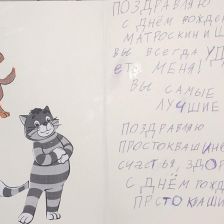 ПОЗДРАВЛЯЮ
С ДНЁМ РОЖДЕ
МАТРОСКИН И Ш
ВЫ ВСЕГДА УД
ЕТЕ МЕНЯ!
ВЫ САМЫЕ
ЛУЧШИЕ
ПОЗДРАВЛЯЮ
ПРОСТОКВАШИНО
СЧАСТЬЯ, ЗДОР
С ДНЁМ РОЖД
ПРОСТОКВАШИ